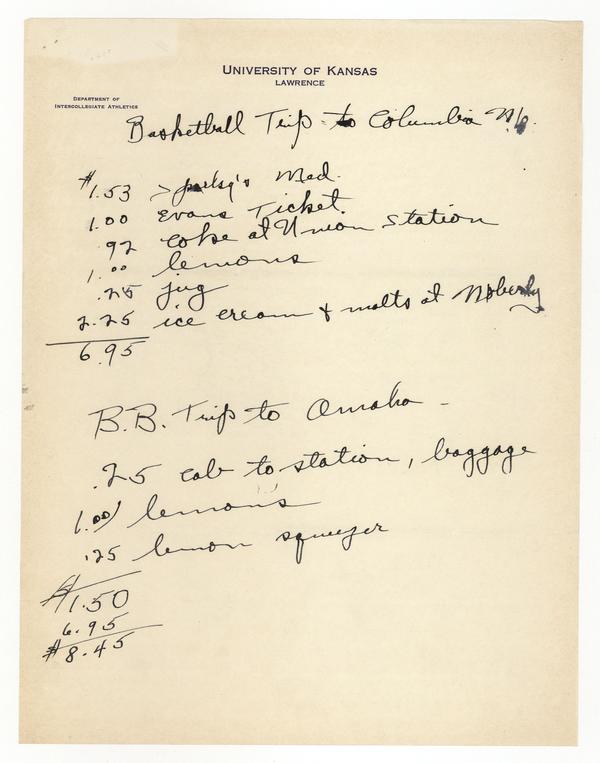 UNIVERSITY OF KANSAS
LAWRENCE
DEPARTMENT OF
INTERCOLLEGIATE ATHLETICS
Basketball Trip to Columbia Mo.
$1.53 Med.
1.00 Evans Ticket.
.92 coke at Union Station
1.00 lemons
.25 jug
2.25 ice cream & malts at Moberly
6.95
B.B. Trip to Omaha -
.25 cab to station, baggage
1.00 lemons
.25 lemon squeezer
$1.50
6.95
$8.45